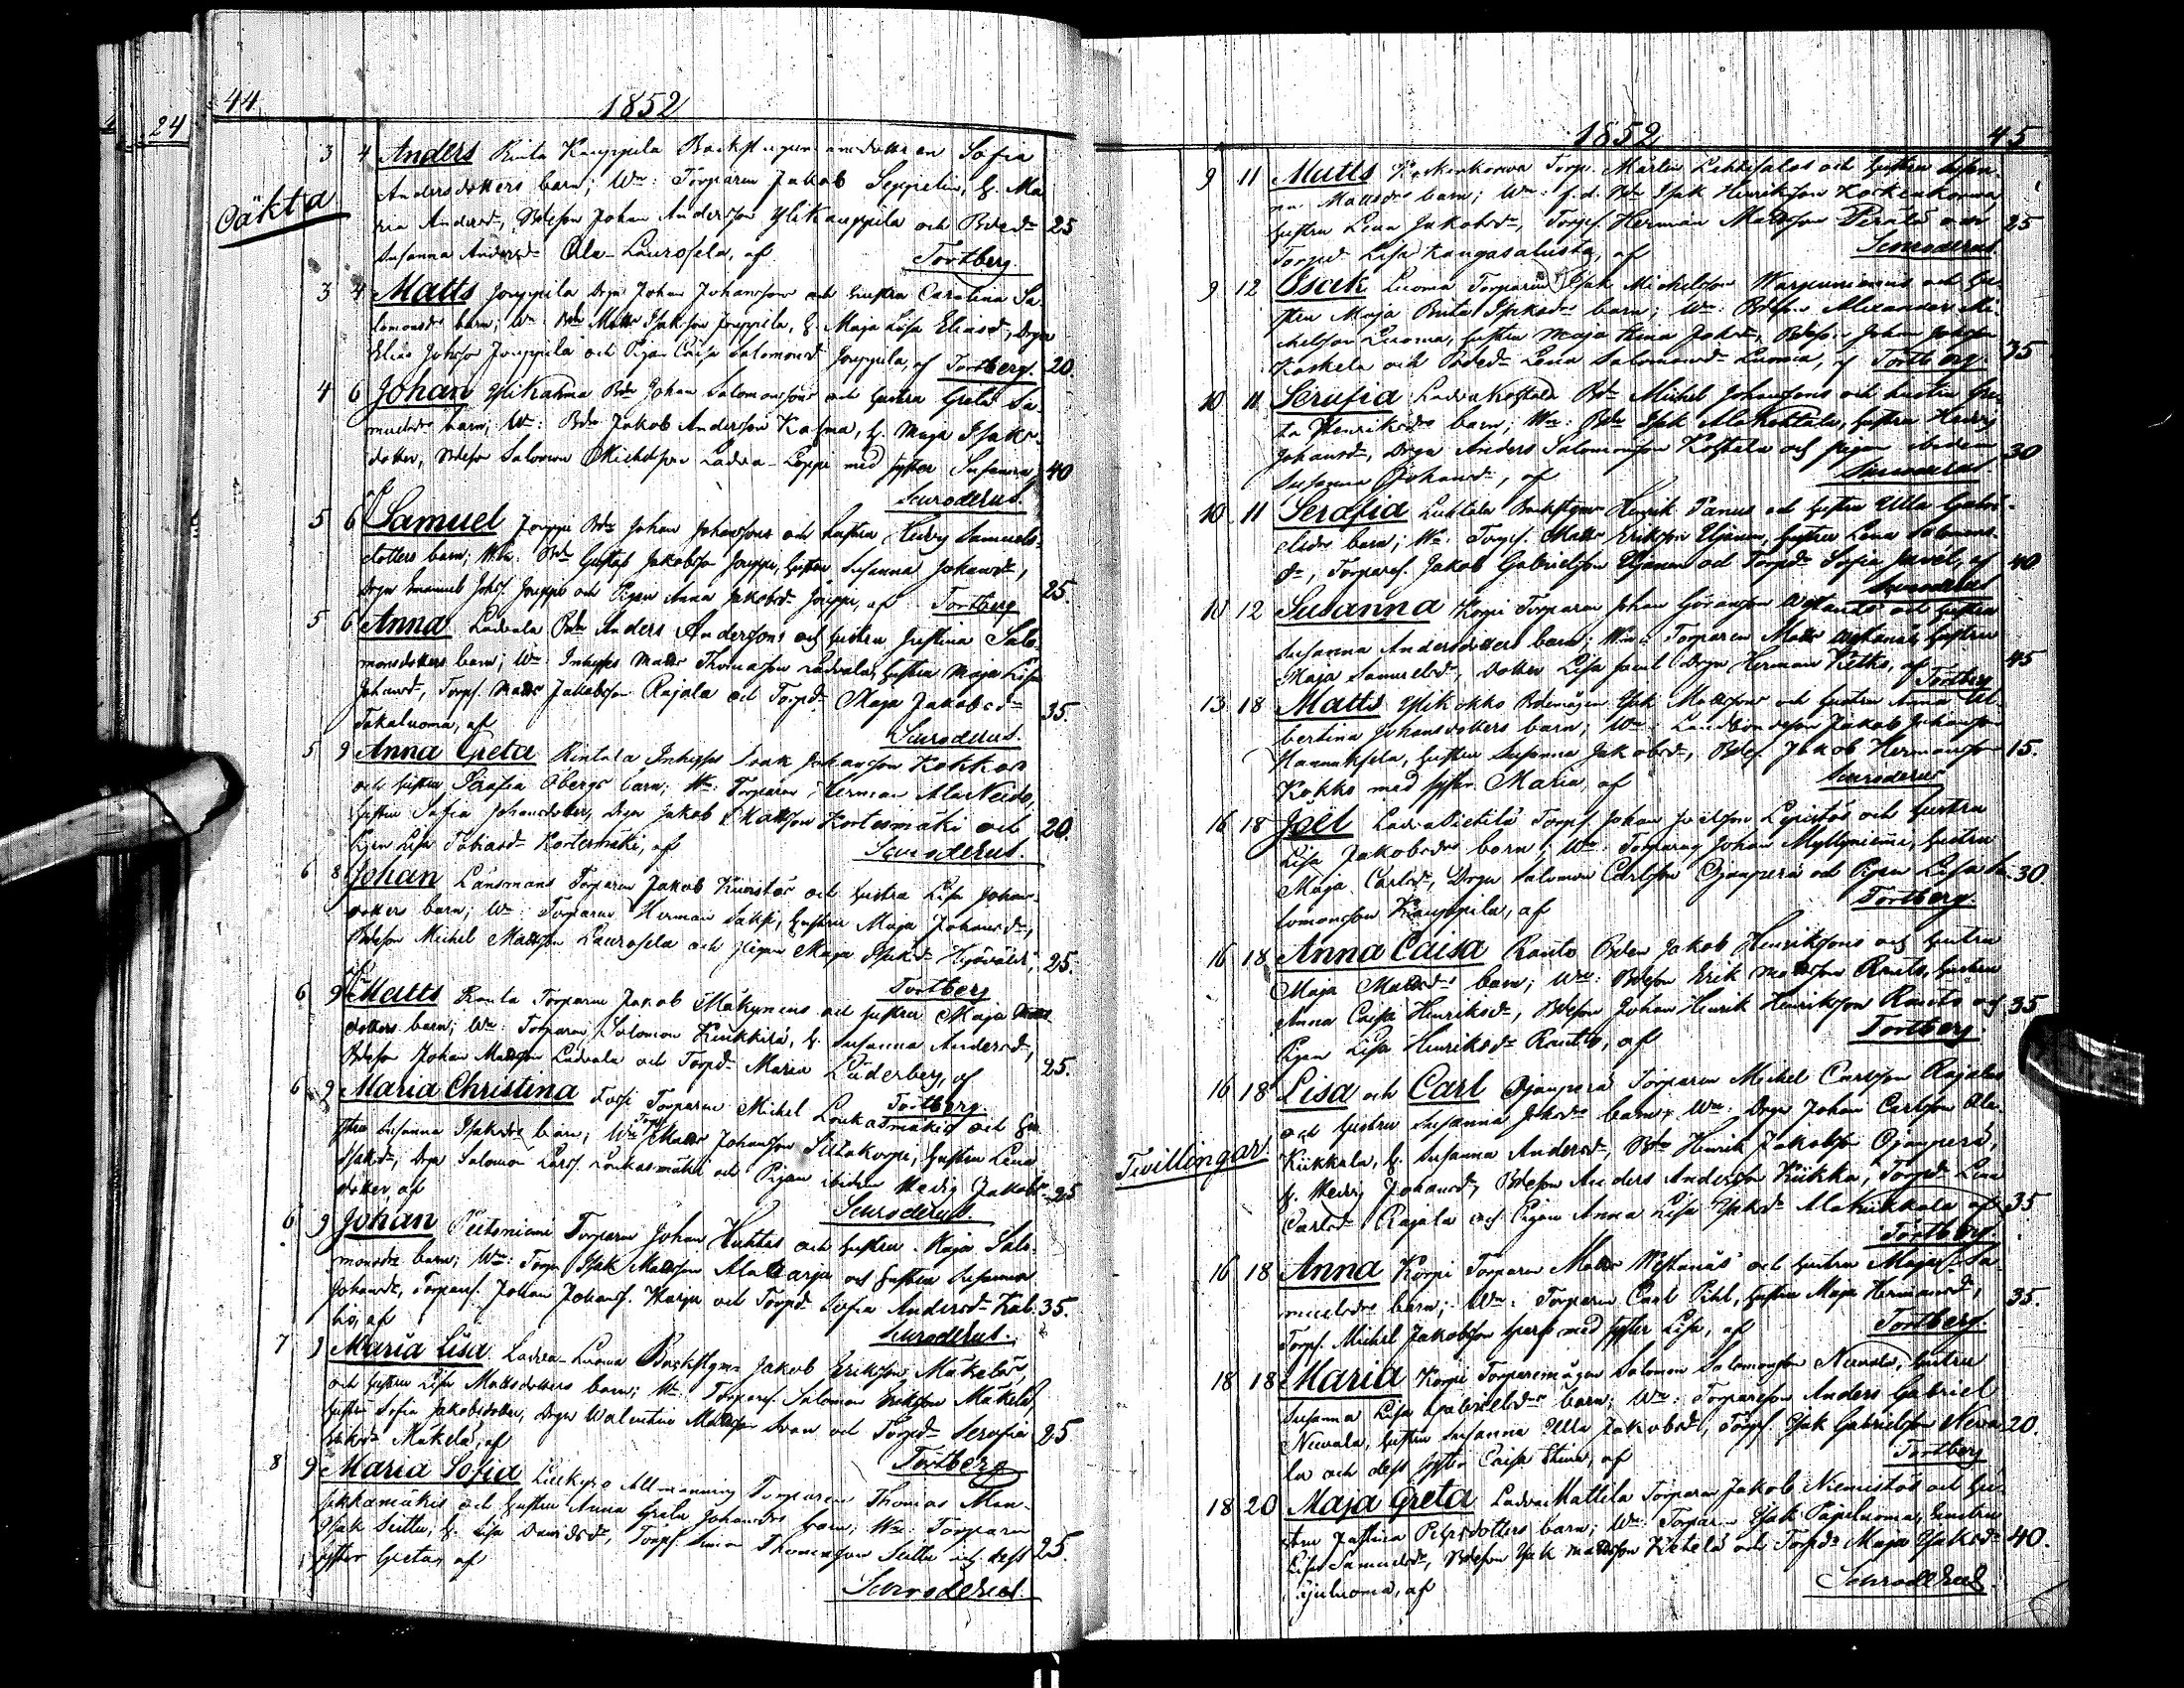 44
1852
24
Oäkta
3 4 Anders Rinta Kauppila Backstuguu dotteren Sofia
Andersdotters barn; Wn: Torparen Jakob Seppelin, h. Ma-
ria Andersd, Bdeson Johan Andersson YliKauppila och Bded 25
Susanna Andersd Ala-Laurosela, af Tortberg.
3 4 Matts Jouppila Drg Johan Johansson och hustru Carolina Sa-
lomonsdrs barn; Wn: Bdn Matts Isaksson Jouppila, h. Maja Lisa Eliasd, Drgn
Elias Johsson Jouppila och Pigan Caisa Salomonsd Jouppila, af Tortberg. 20.
4 6 Johan YliKahma Bdn Johan Salomonssons och hustru Greta Sa-
muelsdrs barn; Wn: Bdn Jakob Andersson Kahma, h. Maja Isaks-
dotter, Bdeson Salomon Michelsson Ladva-Loppi med syster Susanna 40
Scuroderus.
5 6 Samuel Jouppi Bdn Johan Johanssons och hustru Hedvig Samuels-
dotters barn; Wn: Bdn Gustaf Jakobsson Jouppi, hustru Susanna Johansd,
Drgn Emanuel Johss. Jouppi och Pigan Anna Jakobsd Jouppi, af Tortberg 25.
5 6 Anna Ladvala Bdn Anders Anderssons och hustru Justina Salo-
monsdotters barn; Wn: Inhyses Matts Thomasson Ladvala, hustru Maja Lisa
Johansd, Torps. Matts Jakobsson Rajala och Torpd Maja Jakobsd 35.
Takaluoma, af Scuroderus.
5 9 Anna Greta Rintala Inhyses Isaak Johansson Kokkos
och hustru Serafia Obergs barn; Wn: Torparen Herman AlaNeido,
hustru Sofia Johansdotter, Drgn Jakob Mattsson Kortesmäki och 20.
Pigan Lisa Johansd Kortesmäki, af Scuroderus.
6 8 Johan Länsmans Torparen Jakob Kuoistös och hustru Lisa Johans-
dotters barn; Wn: Torparen Herman Saksi, hustru Maja Johansd,
Bdeson Michel Mattsson Laurosela och Pigan Maja Isaksd 25.
Tortberg
6 9 Matts Ranta Torparen Jakob Mäkynens och hustru Maja Matts-
dotters barn; Wn: Torparen Salomon Kiukkilä, h. Susanna Andersd,
Bdeson Johan Mattsson Ladvala och Torpd Maria Luderberg, af 25.
Tortberg
6 9 Maria Christina Torparen Michel Loukasmäkis och hu-
stru Susanna Isaksdrs barn; Wn: Torp Matts Johansson Siltakorpi, hustru Lena
Isaksd, Drgn Salomon Larss. Loukasmäki och Pigan ibidem Hedvig Jakobs- 25
dotter, af Scuroderus.
6 9 Johan Peltoniemi Torparen Johan Huhtas och hustru Maja Salo-
monsdrs barn; Wn: Torpn Isak Mattsson AlaHarja och hustru Susanna
Johansdr, Torpares. Johan Johanss. Harju och Torpd Sofia Andersd Kal- 35.
lio, af Scuroderus.
7 9 Maria Lisa Ladva-Luoma Backstgn Jakob Eriksson Mäkeläs,
och hustru Lisa Mattsdotters barn; Wn: Torpares. Salomon Eriksson Mäkelä
hustru Sofia Jakobsdotter, Drgn Walentin Mattsson Svan och Torpd Serafia 25
Eriksd Mäkelä, af Tortberg
8 9 Maria Sofia Luckyro Allmänning Torparen Thomas Man-
sikkamäkis och hustru Anna Greta Johansdrs barn; Wn: Torparen
Isak Sutti, h. Lisa Davidsd, Torps. Simon Thomasson Sutti och dess 25
syster Greta, af Scuroderus.
1852 45
9 11 Matts Koskenkorva Torp. Martin Lehtisalos och hustru Susan-
na Mattsdrs barn; Wn: f.d. Bdn Isak Henriksson Koskenkorva,
hustru Lena Jakobsd, Torps. Herman Mattsson Perälä och 25
Torpd Lisa Kangasaluista, af Scuroderus.
9 12 Isak Luoma Torparen Isak Michelsson Warpuniemis och hu-
stru Maja Brita Isaksds barn; Wn: Bdeson Alexander Mi-
chelsson Luoma, hustru Maja Stina Johsd, Bdeson Johan Johsson
Koskela och Bded Lena Salomonsd Luoma, af Tortberg. 35
10 11 Serafia LadvaKoskela Bdn Michel Johanssons och hustru Gre-
ta Henriksdrs barn; Wn: Bdn Isak AlaKohtala, hustru Hedvig
Johansd, Drgn Anders Salomonsson Koskela och pigan ibidem 30
Susanna Johansd, af Scuroderus.
10 11 Serafia Luhtala Backstgn Henrik Panus och hustru Ulla Gabri-
elsdrs barn; Wn: Torps. Matts Eriksson Ujanen, hustru Lena Salomons-
dr, Torpares. Jakob Gabrielsson Ujanen och Torpd Sofia Pavel, af 40
Scuroderus
10 12 Susanna Korpi Torparen Johan Göransson Westanäs och hustru
Susanna Andersdotters barn; Wn: Torparen Matts Westanäs, hustru
Maja Samuelsd, dotter Lisa samt Drgn Herman Ketko, af 45
Tortberg
13 18 Matts YliKokko Bdemågen Isak Mattssons och hustru Anna Al-
bertina Johansdotters barn; Wn: Landbondeson Jakob Johansson
Hannuksela, hustru Susanna Jakobsd, Bdes. Jakob Hermansson 15.
Kokko med syster Maria, af Scuroderus
16 18 Joel LadvaPietilä Torps. Johan Joelsson Lepistös och hustru
Lisa Jakobsdrs barn; Wn: Torparen Johan Myllyniemi, hustru
Maja Carlsd, Drgn Salomon Carlsson Ojanperä och Pigan Lisa Sa- 30.
lomonsson Kauppila, af Tortberg.
16 18 Anna Caisa Ranto Bden Jakob Henrikssons och hustru
Maja Mattsdrs barn; Wn: Bdeson Erik Mattsson Ranto, hustru
Anna Caisa Henriksd, Bdeson Johan Henrik Henriksson Ranto och 35
Pigan Lisa Henriksd Ranto, af Tortberg.
Twillingar.
16 18 Lisa och Carl Ojanperä Torparen Michel Carlsson Rajalas
och hustru Susanna Johsdrs barn; Wn: Drgn Johan Carlsson Ala-
Kiikkala, h. Susanna Andersd, Bdn Henrik Jakobsson Ojanperä,
h. Hedvig Johansd, Bdeson Anders Andersson Kiikka, Torpd Lena
Carlsd Rajala och Pigan Anna Lisa Isaksd AlaKiikkala af 35
Tortberg.
16 18 Anna Korpi Torparen Matts Westanäs och hustru Maja Sa-
muelsdrs barn; Wn: Torparen Carl Pihl, hustru Maja Hermansd, 35.
Torps. Michel Jakobsson med syster Lisa, af Tortberg.
18 18 Maria Korpi Torparemågen Salomon Salomonsson Neuvala, hustru
Susanna Lisa Gabrielsdrs barn; Wn: Torpareson Anders Gabriel
Neuvala, hustru Susanna Ulla Jakobsd, Torps. Isak Gabrielsson Neuva- 20.
la och dess syster Caisa Stina, af Tortberg
18 20 Maja Greta LadvaMattila Torparen Jakob Niemistös och hu-
stru Justina Pehrsdotters barn; Wn: Torparen Isak Papiluoma, hustru
Lisa Samuelsd, Bdeson Isak Mattsson Ketelä och Torpd Maja Isaksd 40.
Ojuluoma, af Scuroderus.